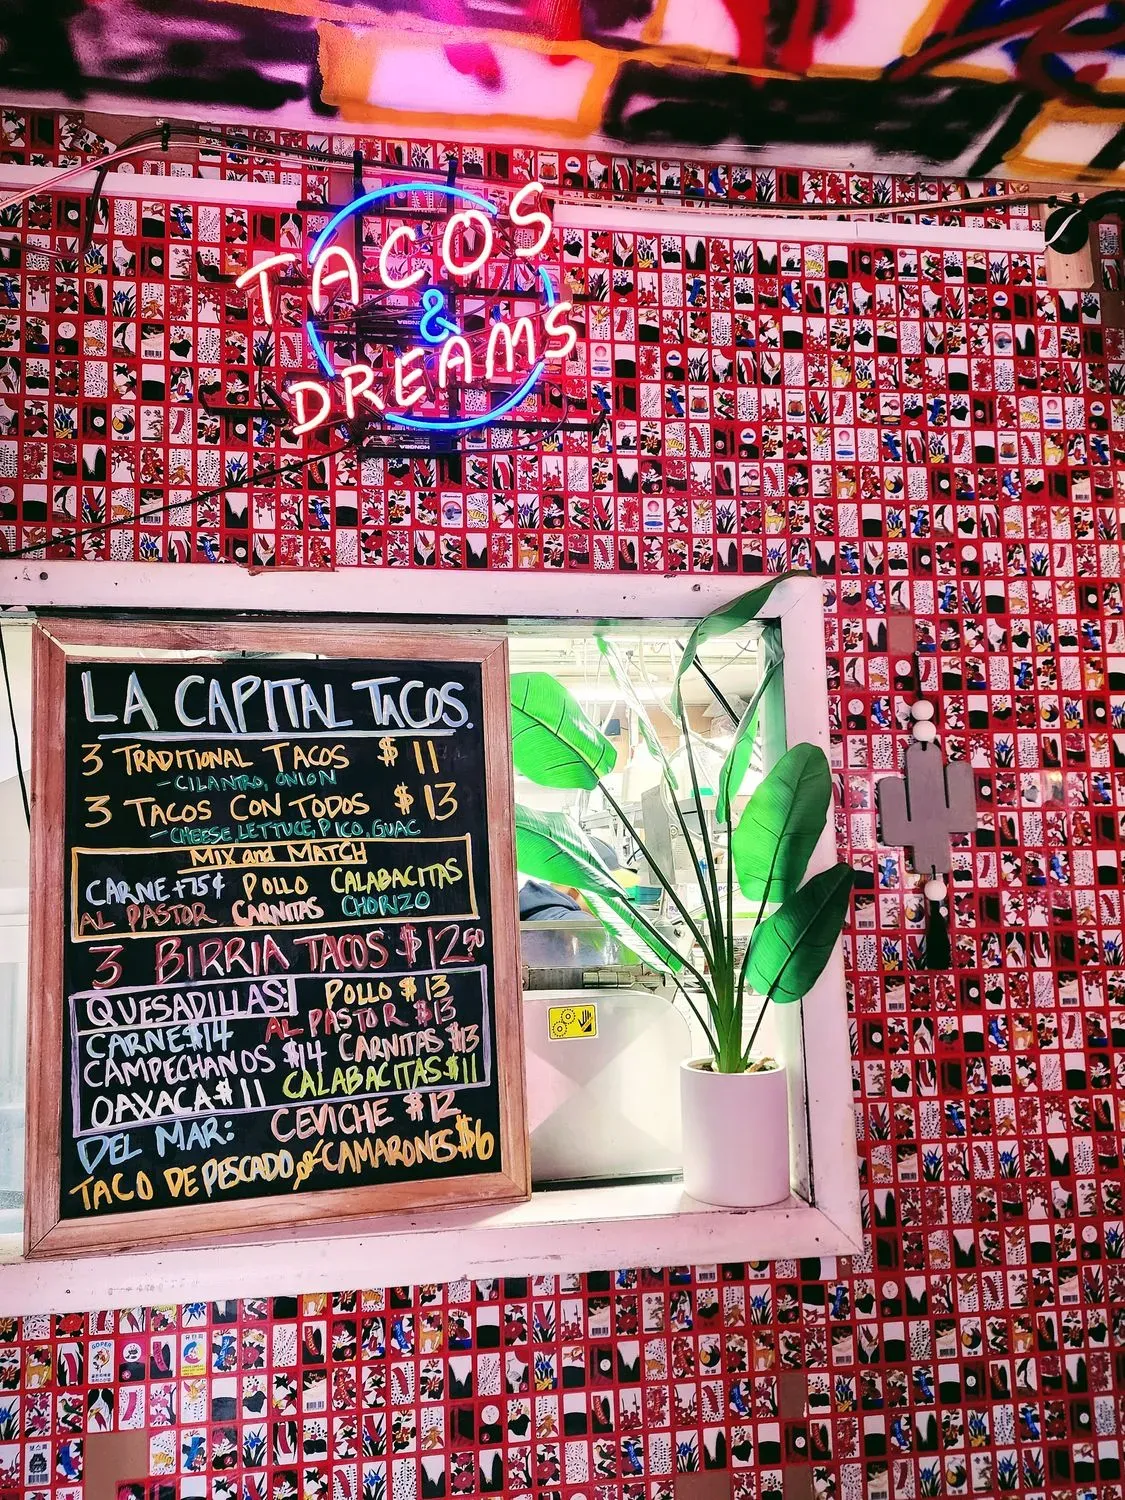 TACOS
&
DREAMS
LA CAPITAL TACOS.
3 TRADITIONAL TACOS $11
-CILANTRO, ONION
3 TACOS CON TODOS $13
-CHEESE, LETTUCE, PICO, GUAC
MIX and MATCH
CARNE+75¢ POLLO CALABACITAS
AL PASTOR CARNITAS CHORIZO
3 BIRRIA TACOS $12.50
QUESADILLAS: POLLO $13
CARNE $14 AL PASTOR $13
CAMPECHANOS $14 CARNITAS $13
OAXACA $11 CALABACITAS $11
DEL MAR: CEVICHE $12
TACO DE PESCADO or CAMARONES $6